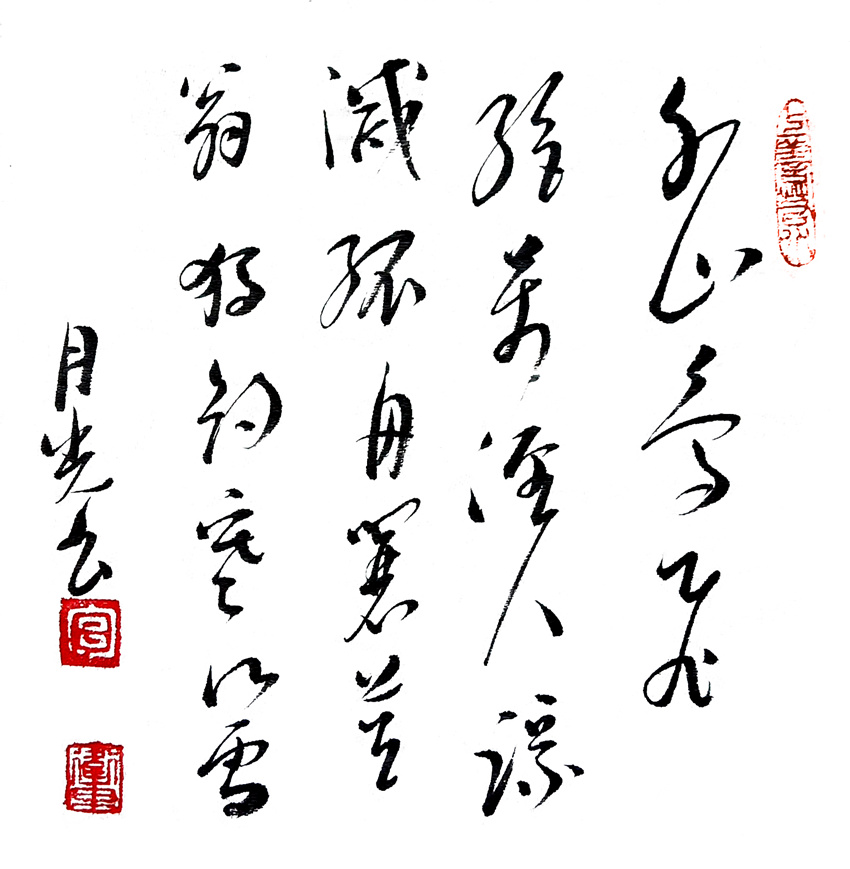 千山鳥飛
絕萬徑人蹤
滅孤舟蓑笠
翁獨釣寒江雪
月光書